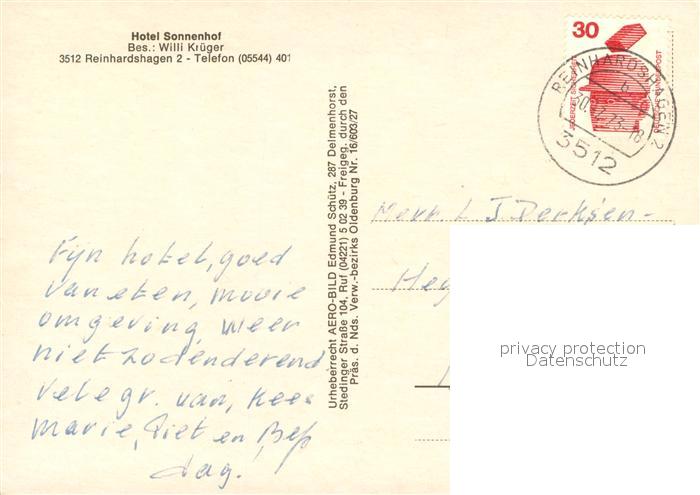 Hotel Sonnenhof
Bes.: Willi Krüger
3512 Reinhardshagen 2 - Telefon (05544) 401
30
JEDERZEIT SICHERHEIT
DEUTSCHE BUNDESPOST
REINHARDSHAGEN 2
3512
Urheberrecht AERO-BILD Edmund Schütz, 287 Delmenhorst,
Stedinger Straße 104, Ruf (04221) 5 02 39 - Freigeg. durch den
Präs. d. Nds. Verw.-bezirks Oldenburg Nr. 16/603/27
Herrn L J. Derksen -
Heg
privacy protection
Datenschutz
Fijn hotel, goed
van eten, mooie
omgeving, weer
niet zodenderend
vele gr. van, Kees
Marie, Piet en, Bep
dag!